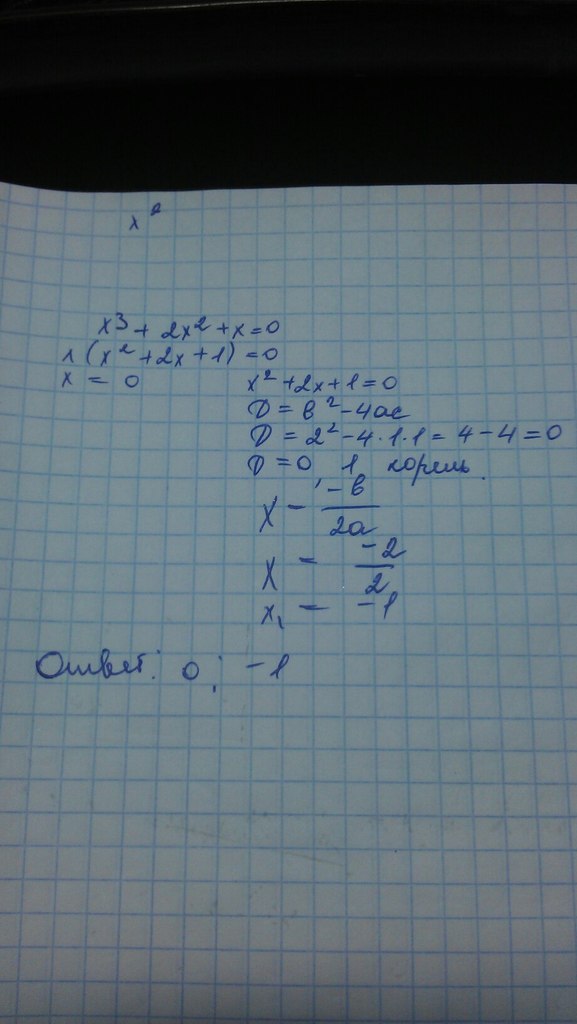 x²
x³ + 2x² + x = 0
x (x² + 2x + 1) = 0
x = 0
x² + 2x + 1 = 0
D = в² - 4ac
D = 2² - 4 · 1 · 1 = 4 - 4 = 0
D = 0, 1 корень.
x = -в / 2a
x = -2 / 2
x₁ = -1
Ответ: 0; -1